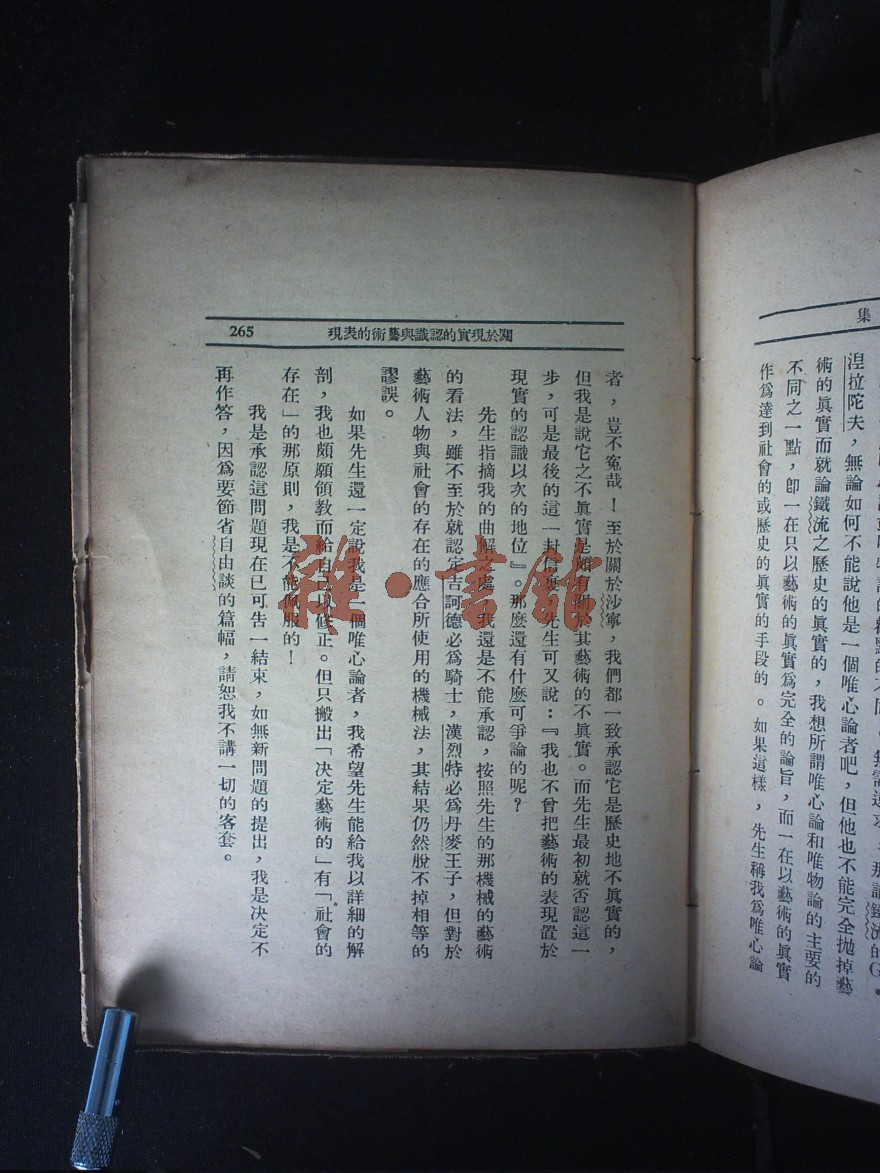 集
涅拉陀夫，無論如何不能說他是一個唯心論者吧，但他也不能完全拋掉藝
術的眞實而就論鐵流之歷史的眞實的，我想所謂唯心論和唯物論的主要的
不同之一點，卽一在只以藝術的眞實爲完全的論旨，而一在以藝術的眞實
作爲達到社會的或歷史的眞實的手段的。如果這樣，先生稱我爲唯心論
265
現表的術藝與識認的實現於關
者，豈不寃哉！至於關於沙寧，我們都一致承認它是歷史地不眞實的，
但我是說它之不眞實是頗有關於其藝術的不眞實。而先生最初就否認這一
步，可是最後的這一封信裏，先生可又說：『我也不曾把藝術的表現置於
現實的認識以次的地位』。那麼還有什麼可爭論的呢？
先生指摘我的曲解之處，我還是不能承認，按照先生的那機械的藝術
的看法，雖不至於就認定吉訶德必爲騎士，漢烈特必爲丹麥王子，但對於
藝術人物與社會的存在的應合所使用的機械法，其結果仍然脫不掉相等的
謬誤。
如果先生還一定說我是一個唯心論者，我希望先生能給我以詳細的解
剖，我也頗願領教而給自己以修正。但只搬出「決定藝術的」有「社會的
存在」的那原則，我是不能佩服的！
我是承認這問題現在已可告一結束，如無新問題的提出，我是决定不
再作答，因爲要節省自由談的篇幅，請恕我不講一切的客套。
雜·書館